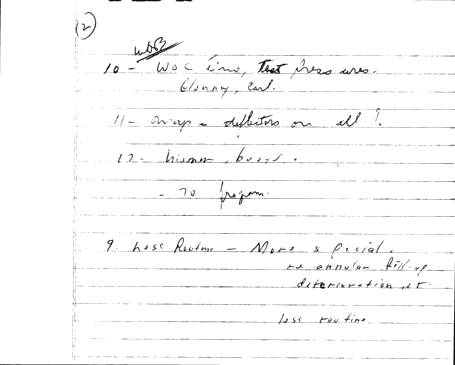 (2)
10 - WOC time, Test pressures.
Glenny, Carl.
11 - - deflectors on all ?
12 -
- 70 program.
9. Less Routine - More special.
re annular fill-up
deterioration et.
less routine